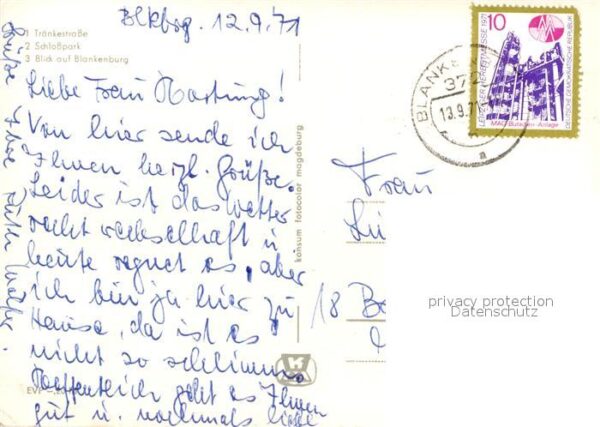 Blkbg. 12.9.71
1 Tränkestraße
2 Schloßpark
3 Blick auf Blankenburg
Liebe Frau Hartung!
Von hier sende ich
Ihnen herzl. Grüße.
Leider ist das Wetter
recht wechselhaft u.
heute regnet es, aber
ich bin ja hier zu
Hause, da ist es
nicht so schlimm.
Hoffentlich geht es Ihnen
gut u. nochmals liebe
Grüße Ihre
konsum fotocolor magdeburg
10
LEIPZIGER HERBSTMESSE 1971
DEUTSCHE DEMOKRATISCHE REPUBLIK
MAG-Butadien-Anlage
BLANKE
372
13.9.71
a
Frau
18
privacy protection
Datenschutz